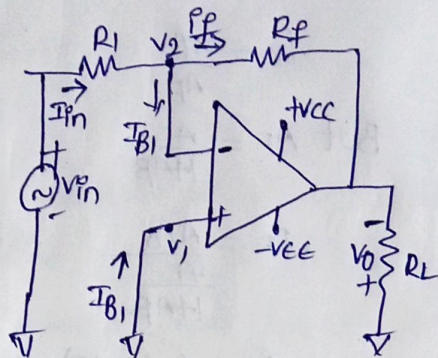 R1 V2 If Rf
Iin IB1 - +VCC
+ Vin -
+ V1 -VEE
IB1
- V0 + RL